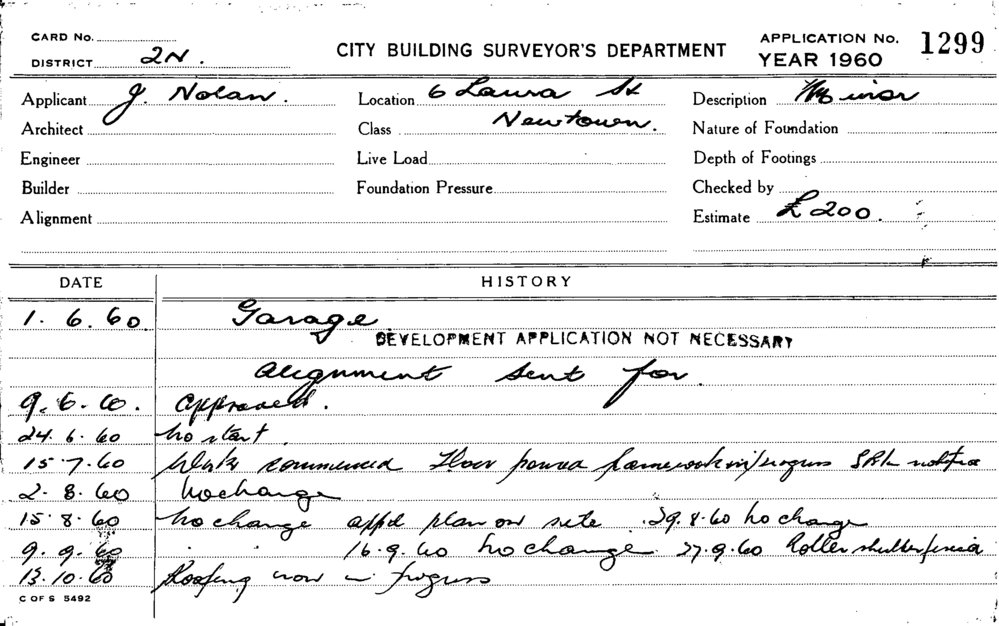 CARD No.
DISTRICT 2N.
CITY BUILDING SURVEYOR'S DEPARTMENT
APPLICATION No. 1299
YEAR 1960
Applicant J. Nolan.
Location 6 Laura St
Description Minor
Architect
Class Newtown.
Nature of Foundation
Engineer
Live Load
Depth of Footings
Builder
Foundation Pressure
Checked by
Alignment
Estimate £200.
DATE
HISTORY
1. 6. 60. Garage
DEVELOPMENT APPLICATION NOT NECESSARY
Alignment sent for.
9. 6. 60. Approved.
24. 6. 60 No start.
15. 7. 60 Work commenced Floor poured framework in progress
2. 8. 60 No change
15. 8. 60 No change app'd plan on site. 29. 8. 60 No change
9. 9. 60 " " 16. 9. 60 No change. 27. 9. 60 Roller shutter
13. 10. 60 Roofing now in progress
C OF S 5492